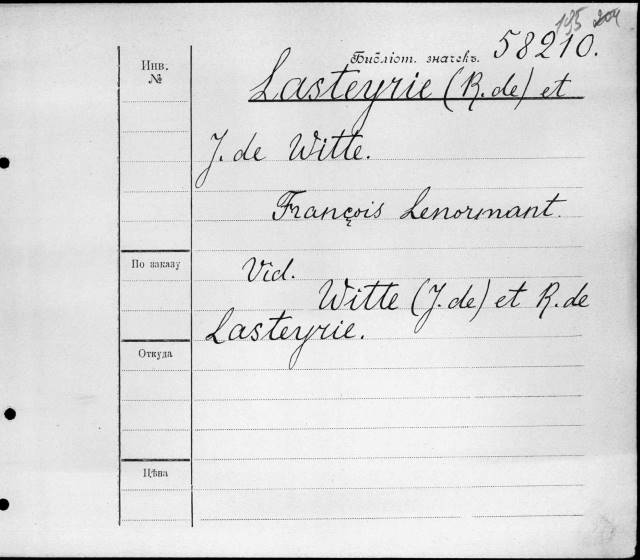 195 204
Инв. №
Библіот. значекъ. 58210.
Lasteyrie (R. de) et
J. de Witte.
François Lenormant.
По заказу
Vid.
Witte (J. de) et R. de
Lasteyrie.
Откуда
Цѣна